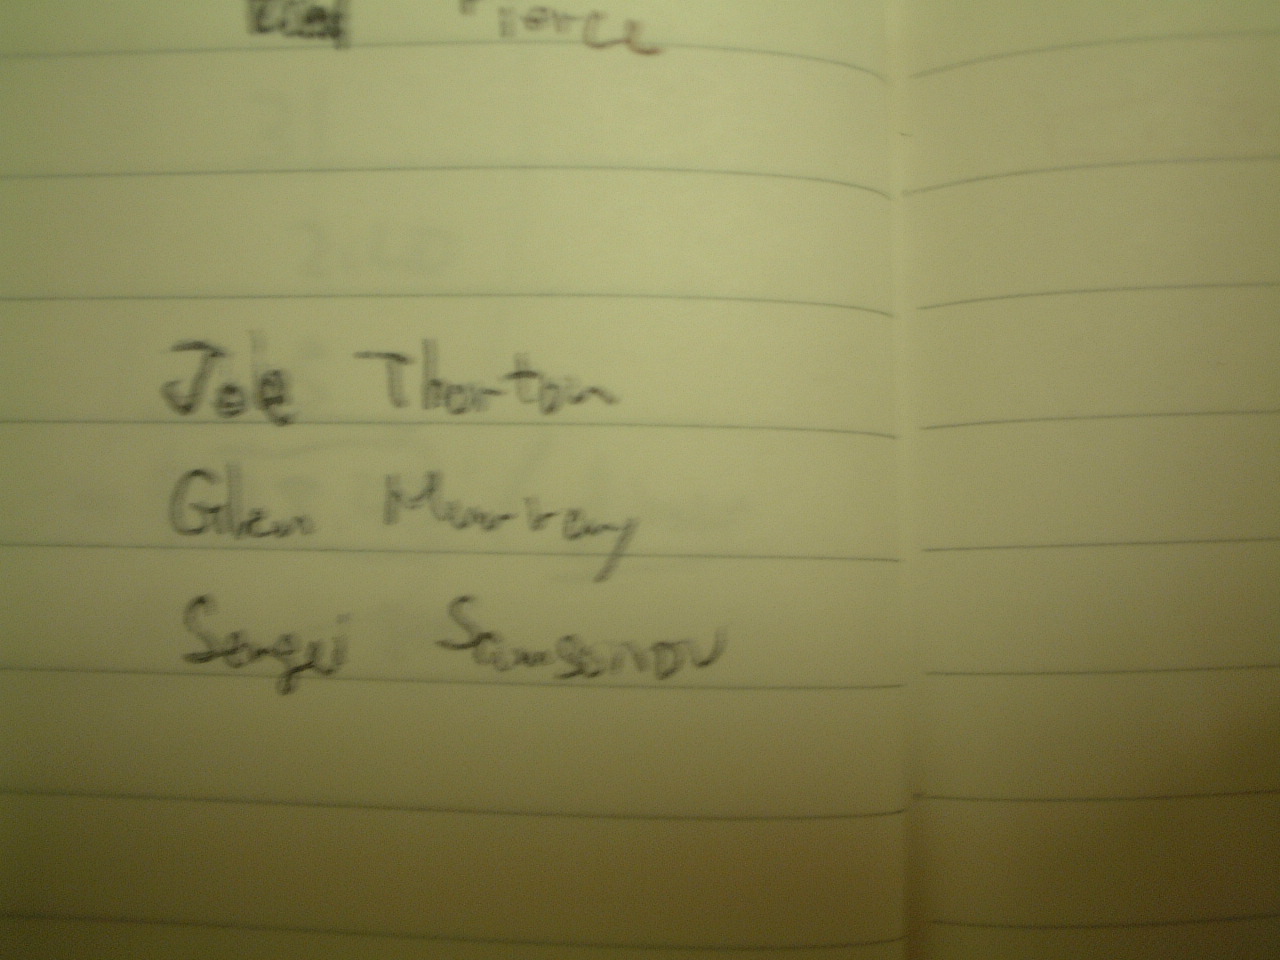 Pierce
Joe Thorton
Glen Murray
Sergei Samsonov